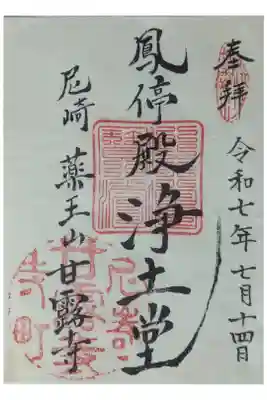 奉拝
令和七年七月十四日
鳳停殿浄土堂
尼崎薬王山甘露寺
尼崎
甘露寺
寺町